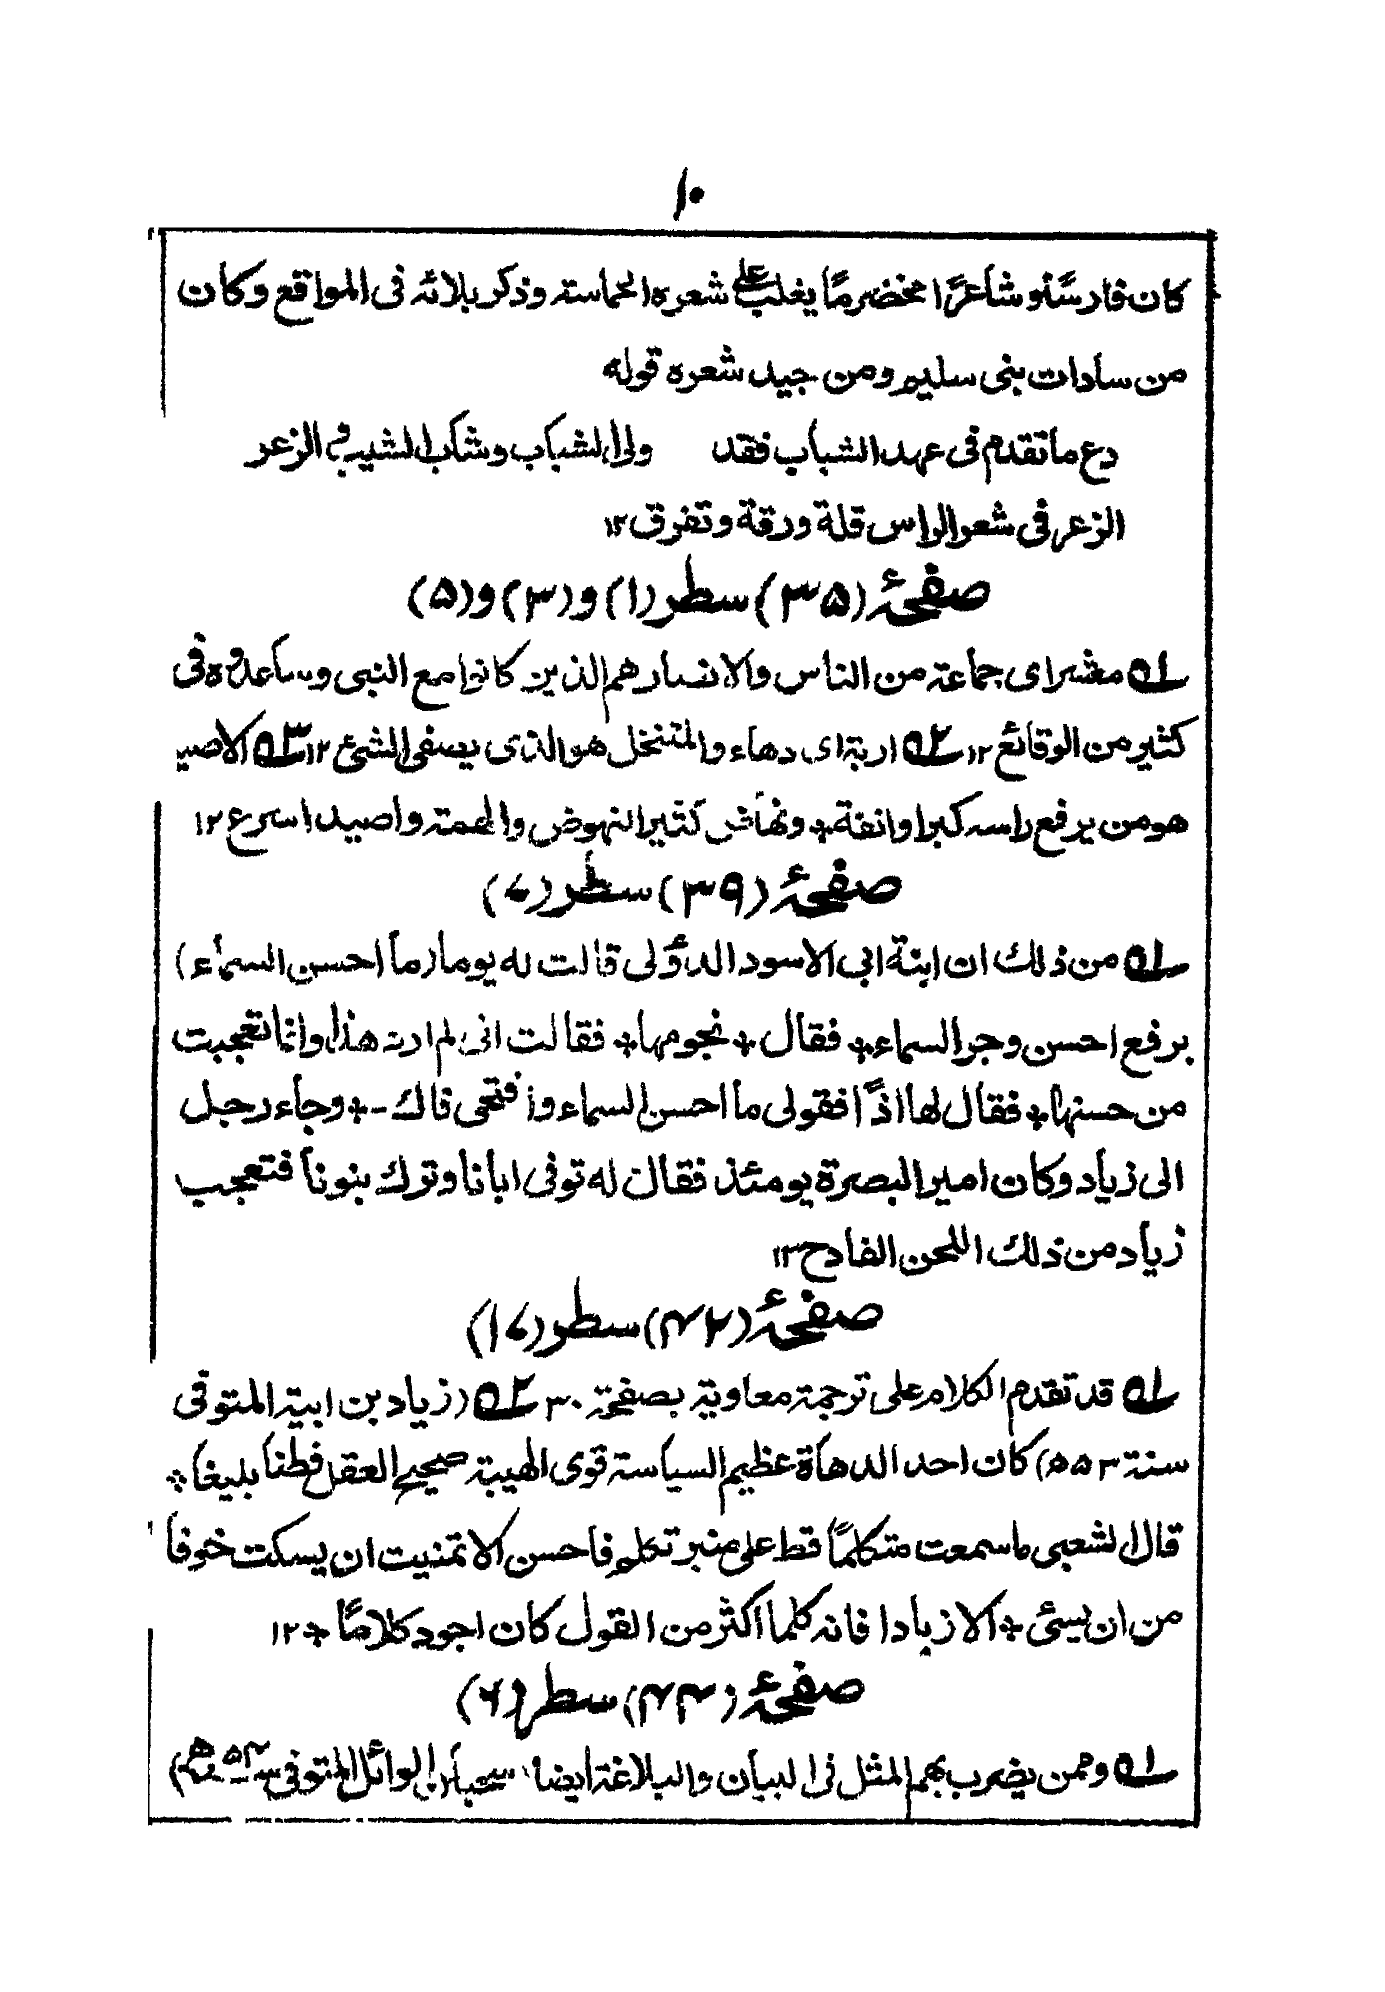 ١٠
كان فارسًا و شاعرًا مخضرمًا يغلب على شعره الحماسته وذكر بلائه فى المواقع وكان
من سادات بنى سليم ومن جيد شعره قوله
دع ما تقدم فى عهد الشباب فقد ولى الشباب وشاب الشيب فى الزعر
الزعر فى شعر الراس قلة ورقة وتفرق ١٢
صفحۂ (٣٥) سطر (١) و (٣) و (٥)
ه١ معشر اى جماعته من الناس والانصار هم الذين كانوا مع النبى وساعدوه فى
كثير من الوقائع ١٢ ه٢ اربة اى دهاء والمتنخل هو الذى يصفى الشئ ١٢ ه٣ الاصيد
هو من يرفع راسه كبرا وانفة * ونهاض كثير النهوض والهمته واصيد اسرع ١٢
صفحۂ (٣٩) سطر (٧)
ه١ من ذلك ان ابنة ابى الاسود الدؤلى قالت له يوما رما احسن السماء)
برفع احسن وجر السماء * فقال * نجومها * فقالت انى لم ارد هذا وانما تعجبت
من حسنها * فقال لها اذًا فقولى ما احسن السماء وافتحى فاك - * وجاء رجل
الى زياد وكان امير البصرة يومئذ فقال له توفى ابانا وترك بنونا فتعجب
زياد من ذلك اللحن الفادح ١٢
صفحۂ (٤٢) سطر (١٧)
ه١ قد تقدم الكلام على ترجمته معاوية بصفحته ٣٠ ه٢ (زياد بن ابيه المتوفى
سنة ٥٣ ه) كان احد الدهاة عظيم السياسته قوى الهيبته صحيح العقل فطنا بليغا *
قال الشعبى ما سمعت متكلمًا قط على منبر تكلم فاحسن الا تمنيت ان يسكت خوفا
من ان يسئ * الا زيادا فانه كلما اكثر من القول كان اجود كلامًا * ١٢
صفحۂ (٤٤) سطر (٦)
ه١ وممن يضرب بهم المثل فى البيان والبلاغته ايضا سحبان الوائل المتوفى سـ٥٤ـه)